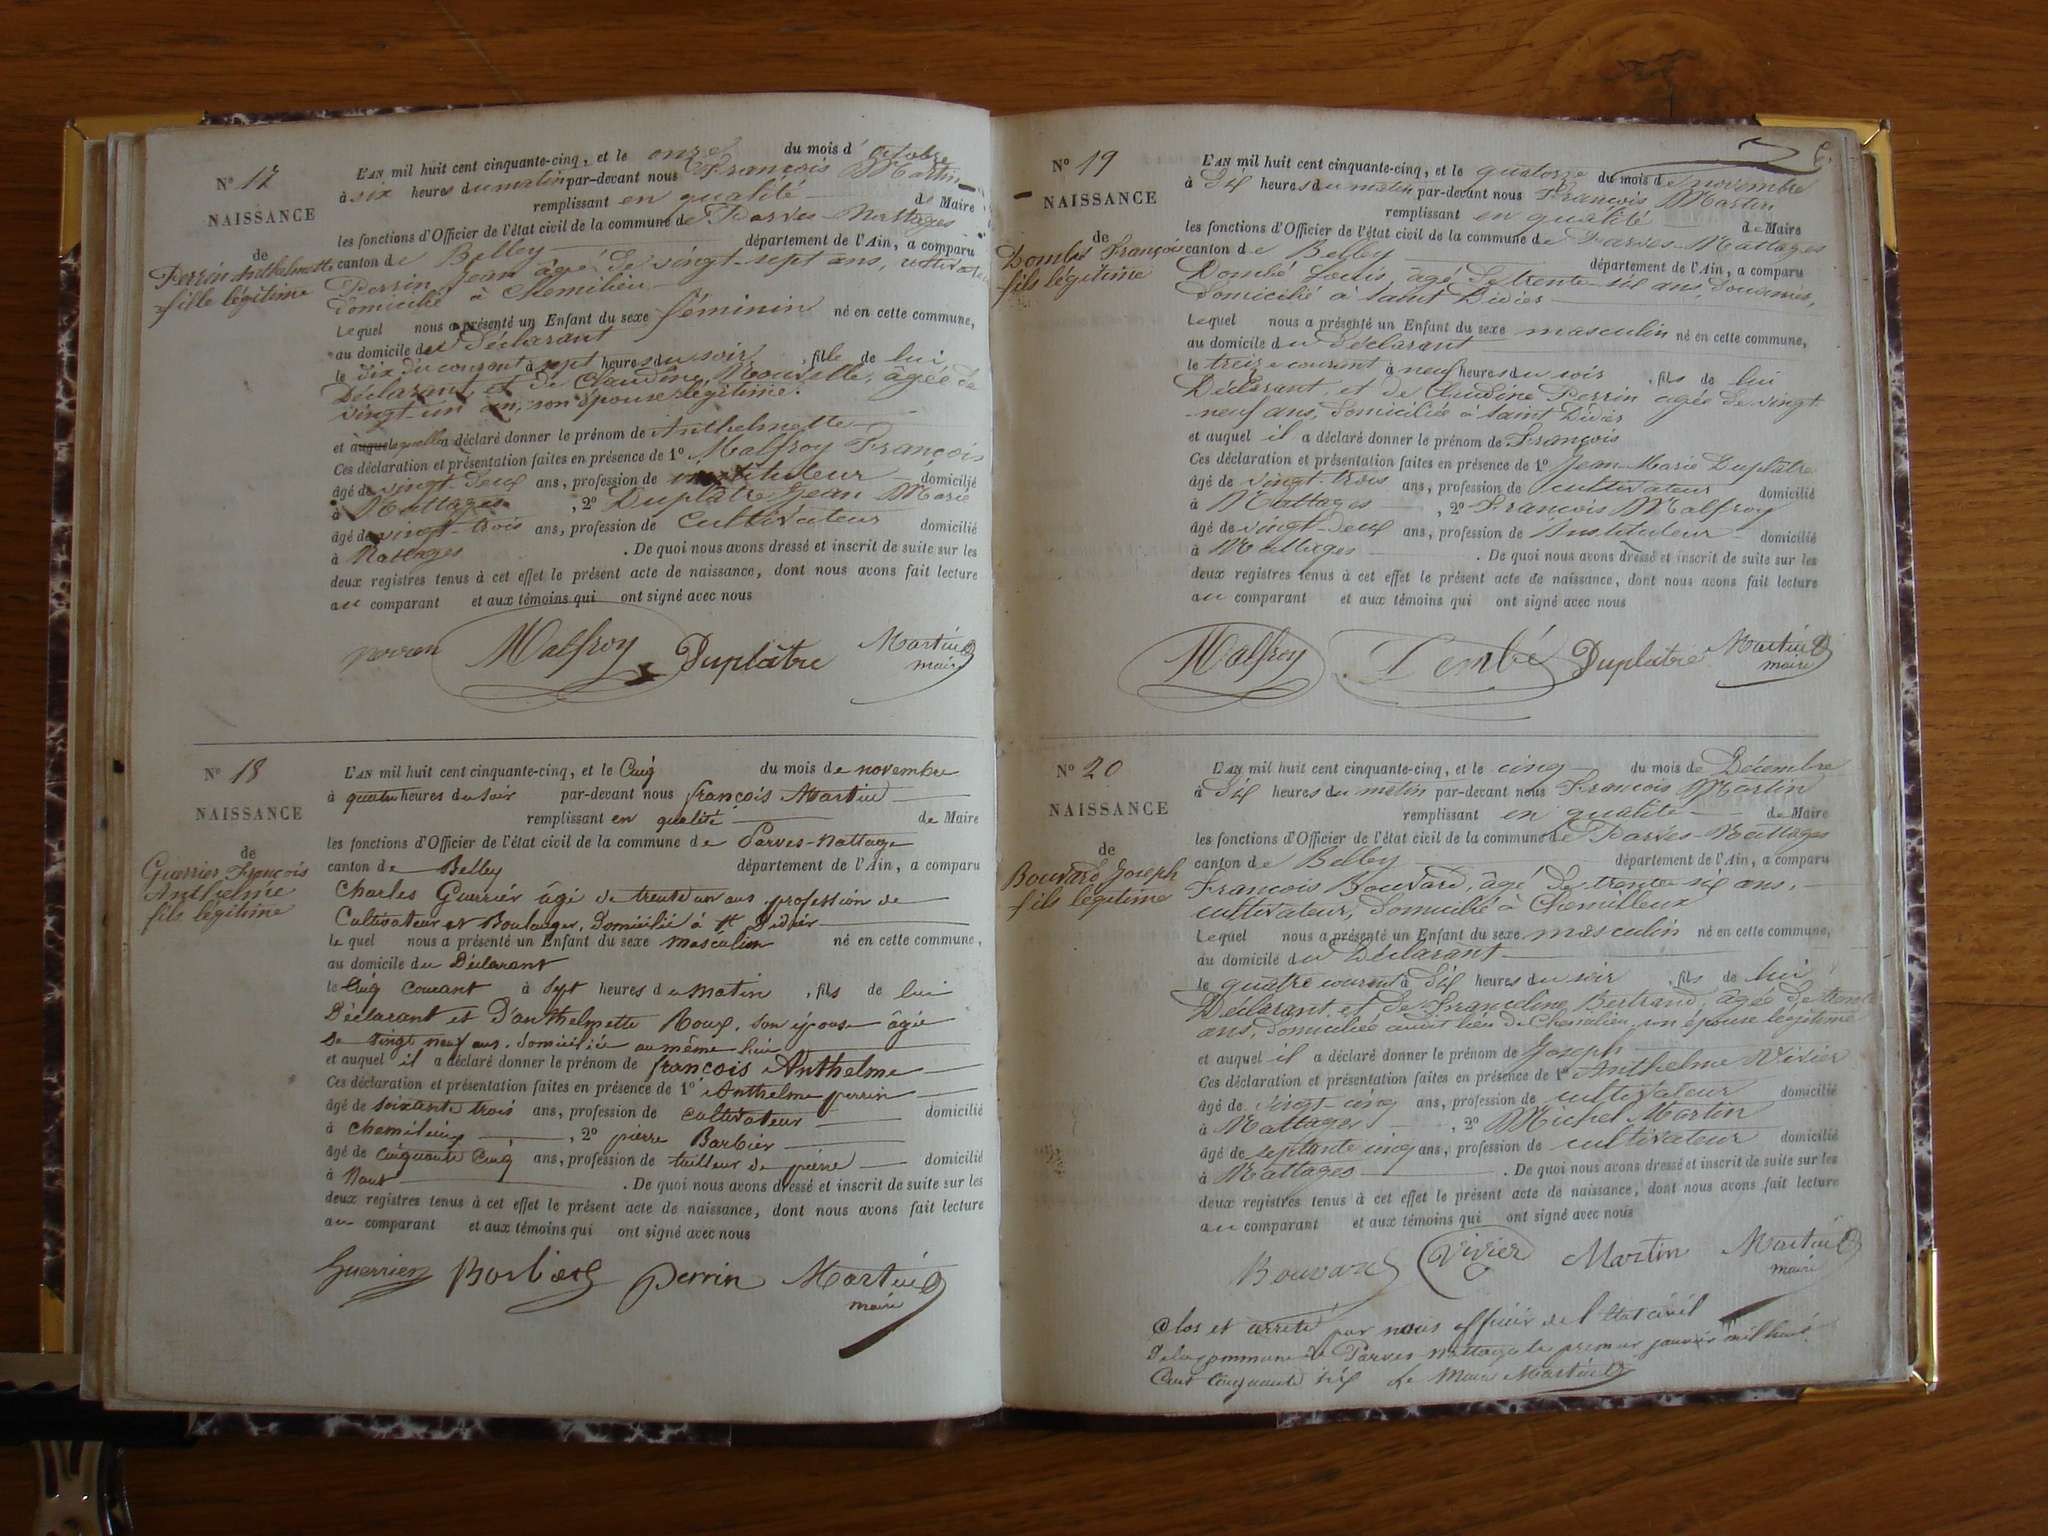 N° 17
NAISSANCE
de
Perrin Anthelmette
fille légitime
L'AN mil huit cent cinquante-cinq, et le onze du mois d'octobre
à six heures du matin par-devant nous François Martin
remplissant en qualité de Maire
les fonctions d'Officier de l'état civil de la commune de Parves-Nattages
canton de Belley département de l'Ain, a comparu
Perrin Jean âgé de vingt-sept ans, cultivateur
domicilié à Chemilieu
Lequel nous a présenté un Enfant du sexe féminin né en cette commune,
au domicile du déclarant
le dix du courant à sept heures du soir, fille de lui
Déclarant et de Claudine, âgée de
vingt-un an, son épouse légitime.
et à laquelle a déclaré donner le prénom de Anthelmette
Ces déclaration et présentation faites en présence de 1° Malfroy François
âgé de vingt deux ans, profession de instituteur domicilié
à Nattages, 2° Duplâtre Jean Marie
âgé de vingt-trois ans, profession de Cultivateur domicilié
à Nattages. De quoi nous avons dressé et inscrit de suite sur les
deux registres tenus à cet effet le présent acte de naissance, dont nous avons fait lecture
au comparant et aux témoins qui ont signé avec nous
Malfroy Duplâtre Martin
maire
N° 18
NAISSANCE
de
Guerrier François
Anthelme
fils légitime
L'AN mil huit cent cinquante-cinq, et le Cinq du mois de novembre
à quatre heures du soir par-devant nous françois Martin
remplissant en qualité de Maire
les fonctions d'Officier de l'état civil de la commune de Parves-nattage
canton de Belley département de l'Ain, a comparu
Charles Guerrier âgé de trente un ans profession de
Cultivateur et Boulanger, Domicilié à St Didier
le quel nous a présenté un Enfant du sexe masculin né en cette commune,
au domicile du Déclarant
le Cinq courant à Sept heures du matin, fils de lui
Déclarant et D'anthelmette Roux, son épouse âgée
de vingt neuf ans, domiciliée au même lieu
et auquel il a déclaré donner le prénom de françois Anthelme
Ces déclaration et présentation faites en présence de 1° Anthelme perrin
âgé de soixante trois ans, profession de cultivateur domicilié
à chemilieu, 2° pierre Barbier
âgé de cinquante Cinq ans, profession de tailleur de pierre domicilié
à. De quoi nous avons dressé et inscrit de suite sur les
deux registres tenus à cet effet le présent acte de naissance, dont nous avons fait lecture
au comparant et aux témoins qui ont signé avec nous
Guerrier Barbier perrin Martin
maire
6.
N° 19
NAISSANCE
de
Dombé François
fils légitime
L'AN mil huit cent cinquante-cinq, et le quatorze du mois de novembre
à dix heures du matin par-devant nous François Martin
remplissant en qualité de Maire
les fonctions d'Officier de l'état civil de la commune de Parves-Nattages
canton de Belley département de l'Ain, a comparu
Dombé Louis, âgé de trente-six ans, Douanier,
domicilié à Saint Didier
Lequel nous a présenté un Enfant du sexe masculin né en cette commune,
au domicile du déclarant
le treize courant à neuf heures du soir, fils de lui
Déclarant, et de Claudine Perrin âgée de vingt-
neuf ans, domiciliée à Saint Didier
et auquel il a déclaré donner le prénom de François
Ces déclaration et présentation faites en présence de 1° Jean-Marie Duplâtre
âgé de vingt-trois ans, profession de cultivateur domicilié
à Nattages, 2° François Malfroy
âgé de vingt-deux ans, profession de Instituteur domicilié
à Nattages. De quoi nous avons dressé et inscrit de suite sur les
deux registres tenus à cet effet le présent acte de naissance, dont nous avons fait lecture
au comparant et aux témoins qui ont signé avec nous
Malfroy Dombé Duplâtre Martin
maire
N° 20
NAISSANCE
de
Bouvard Joseph
fils légitime
L'AN mil huit cent cinquante-cinq, et le cinq du mois de Décembre
à dix heures du matin par-devant nous François Martin
remplissant en qualité de Maire
les fonctions d'Officier de l'état civil de la commune de Parves-Nattages
canton de Belley département de l'Ain, a comparu
François Bouvard, âgé de trente six ans,
cultivateur, domicilié à Chemilleux
Lequel nous a présenté un Enfant du sexe masculin né en cette commune,
au domicile du Déclarant
le quatre courant à dix heures du soir, fils de lui
Déclarant, et de Françoline Bertrand, âgée de trente
ans, domiciliée audit lieu de Chemilieu, son épouse légitime
et auquel il a déclaré donner le prénom de Joseph
Ces déclaration et présentation faites en présence de 1° Anthelme Vivier
âgé de vingt-cinq ans, profession de cultivateur domicilié
à Nattages, 2° Michel Martin
âgé de septante cinq ans, profession de cultivateur domicilié
à Nattages. De quoi nous avons dressé et inscrit de suite sur les
deux registres tenus à cet effet le présent acte de naissance, dont nous avons fait lecture
au comparant et aux témoins qui ont signé avec nous
Bouvard Vivier Martin Martin
maire
Clos et arrêté par nous officier de l'état civil
De la commune de Parves-nattage le premier janvier mil huit
Cent cinquante six Le Maire Martin